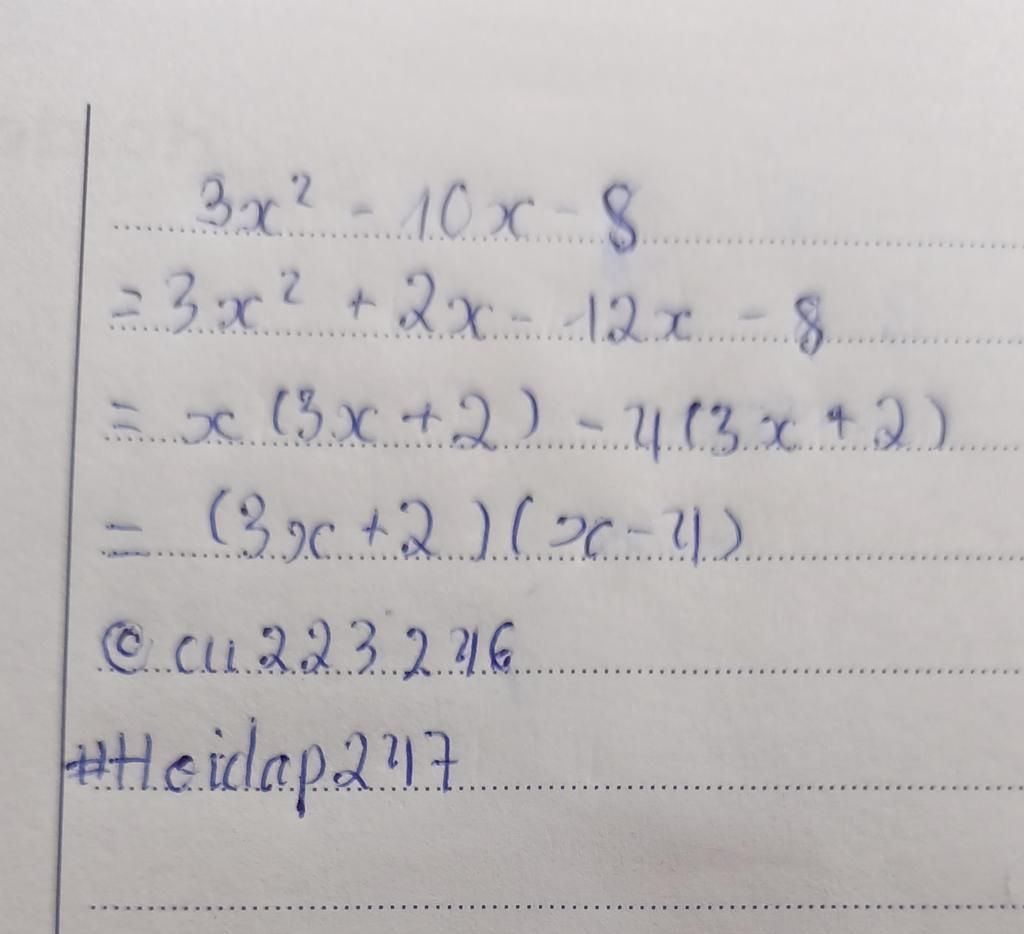 3x² - 10x - 8
= 3x² + 2x - 12x - 8
= x (3x + 2) - 4(3x + 2)
= (3x + 2)(x - 4)
© cu223246
#Hoidap247